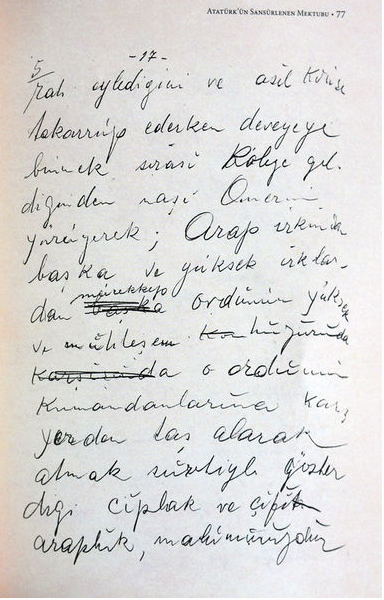 ATATÜRK'ÜN SANSÜRLENEN MEKTUBU • 77
-17-
5
rah eylediğini ve asil Kudüse
takarrüp ederken deveyeye
binmek sırası Köleye gel-
diğinden naşi Ömerin
yürüyerek; Arap ırkından
başka ve yüksek ırklar-
mürekkep
dan başka ordunun yüksek
ve muhteşem huzurunda
karşısında o ordunun
Kumandanlarına karşı
yerden taş alarak
atmak suretiyle göster
diği çıplak ve çiğ
araplık, malûmunuzdur